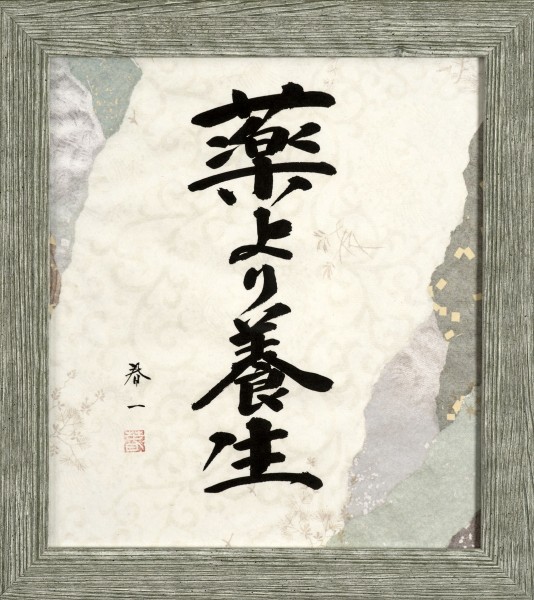 薬より養生
春一